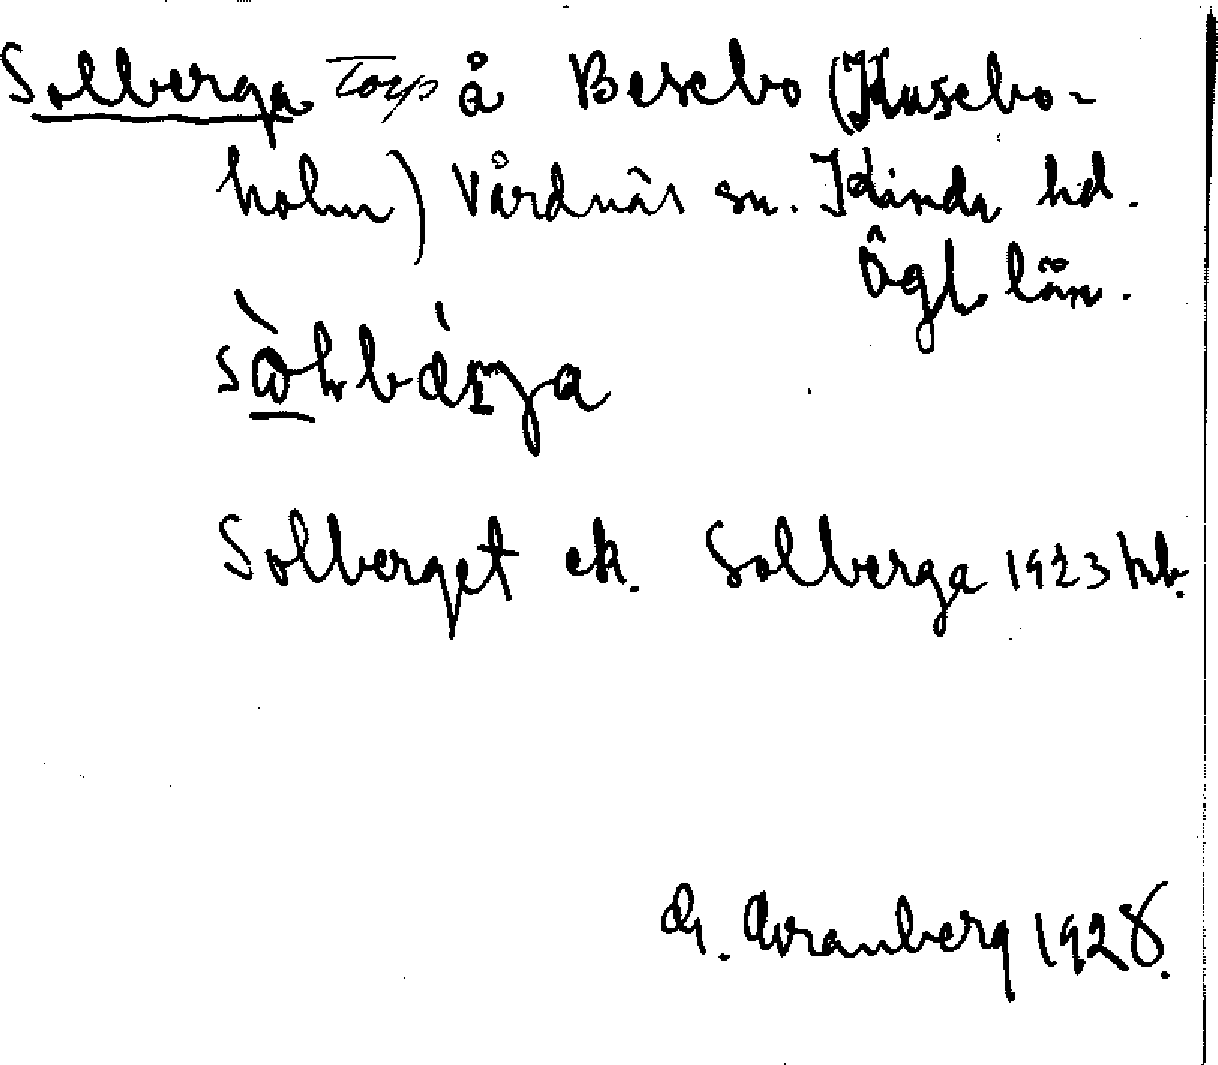 Solberga Torp å Besebo (Husebo-
holm) Vårdnäs sn. Kinda hd.
Ögl län.
Solberget ek. Solberga 1923 kb.
1928.